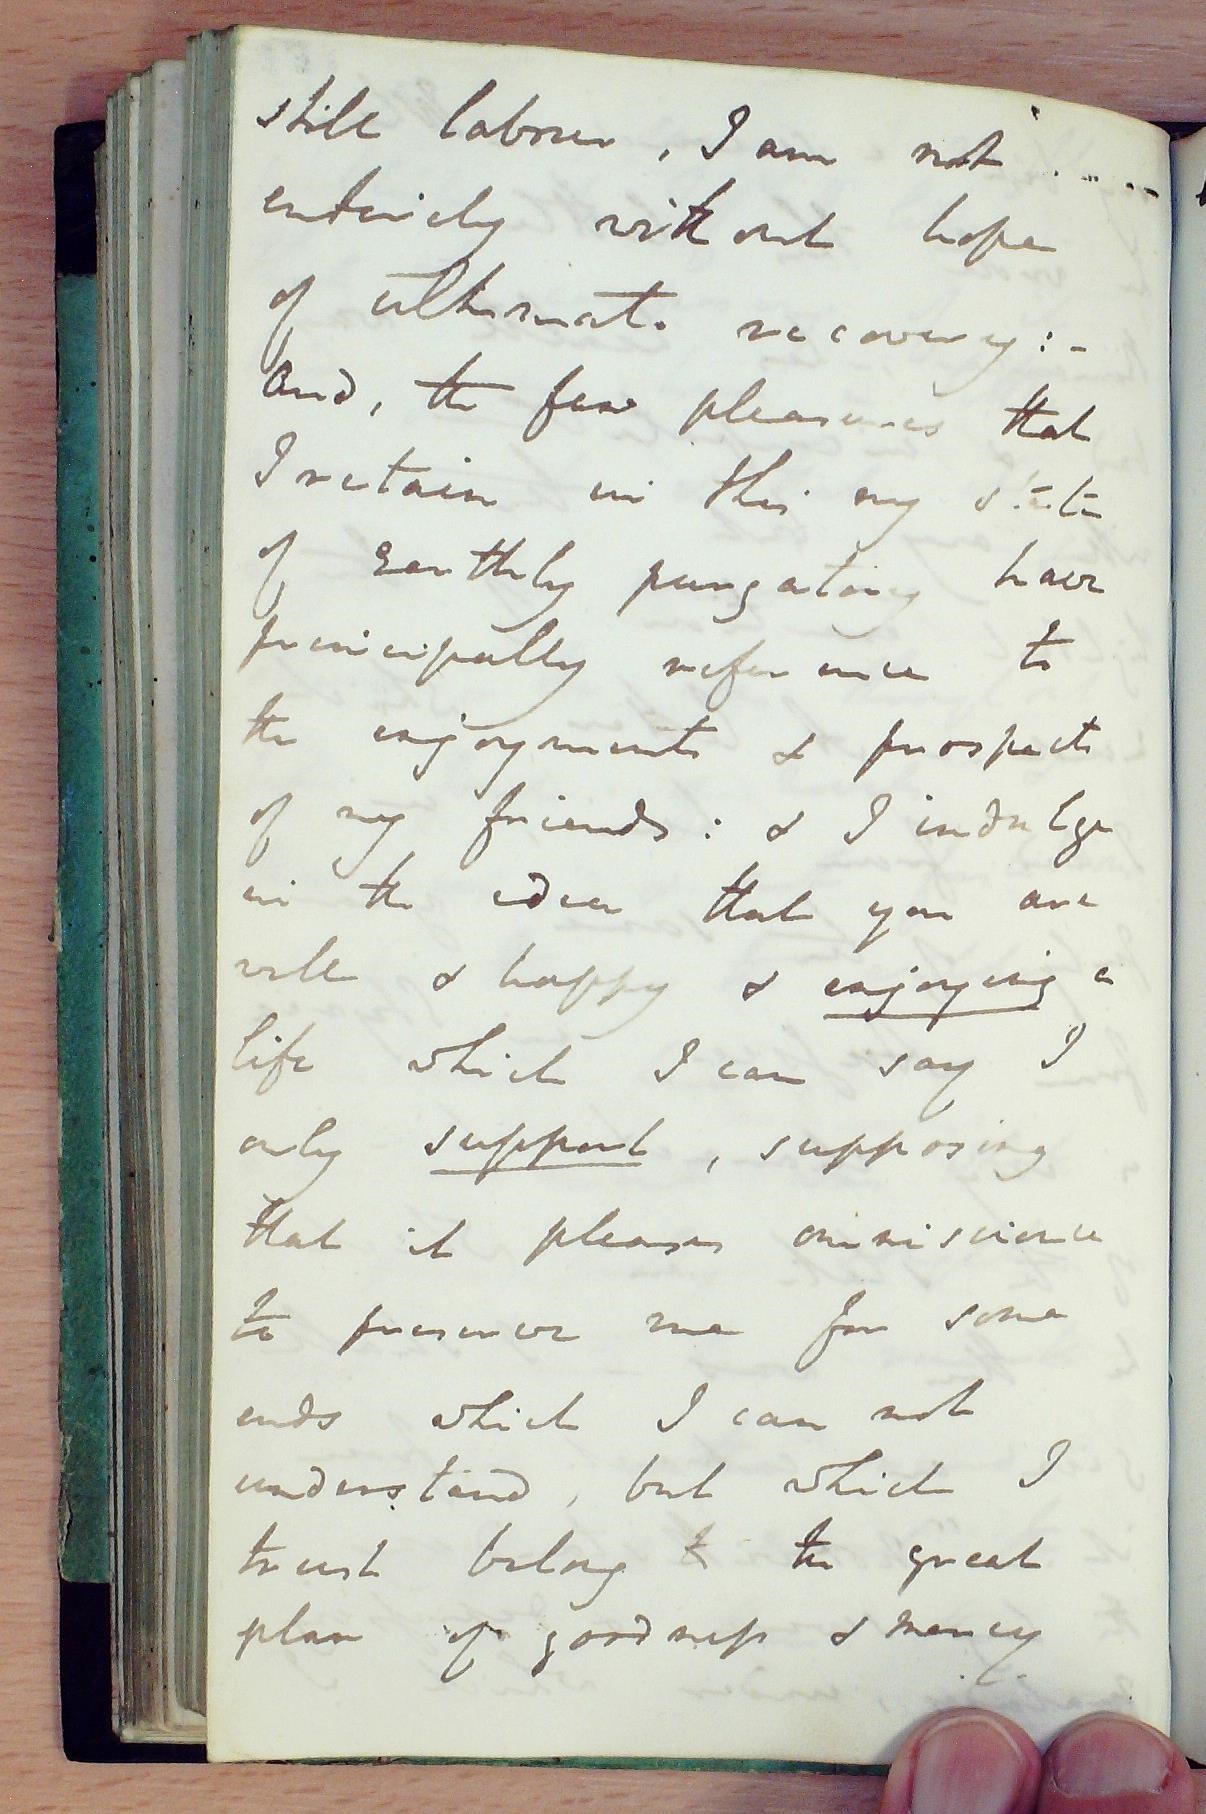 still labour, I am not ....
entirely without hope
of ultimate recovery:-
And, the few pleasures that
I retain in this my state
of Earthly purgatory have
principally reference to
the enjoyments & prospects
of my friends: & I indulge
in the idea that you are
well & happy & enjoying a
life which I can say I
only support, supposing
that it pleases omniscience
to preserve me for some
ends which I can not
understand, but which I
trust belong to the great
plan of goodness & mercy